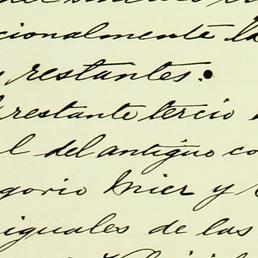 cionalmente la
restantes.
restante tercio
l del antiguo co
gorio Mier y
iguales de las